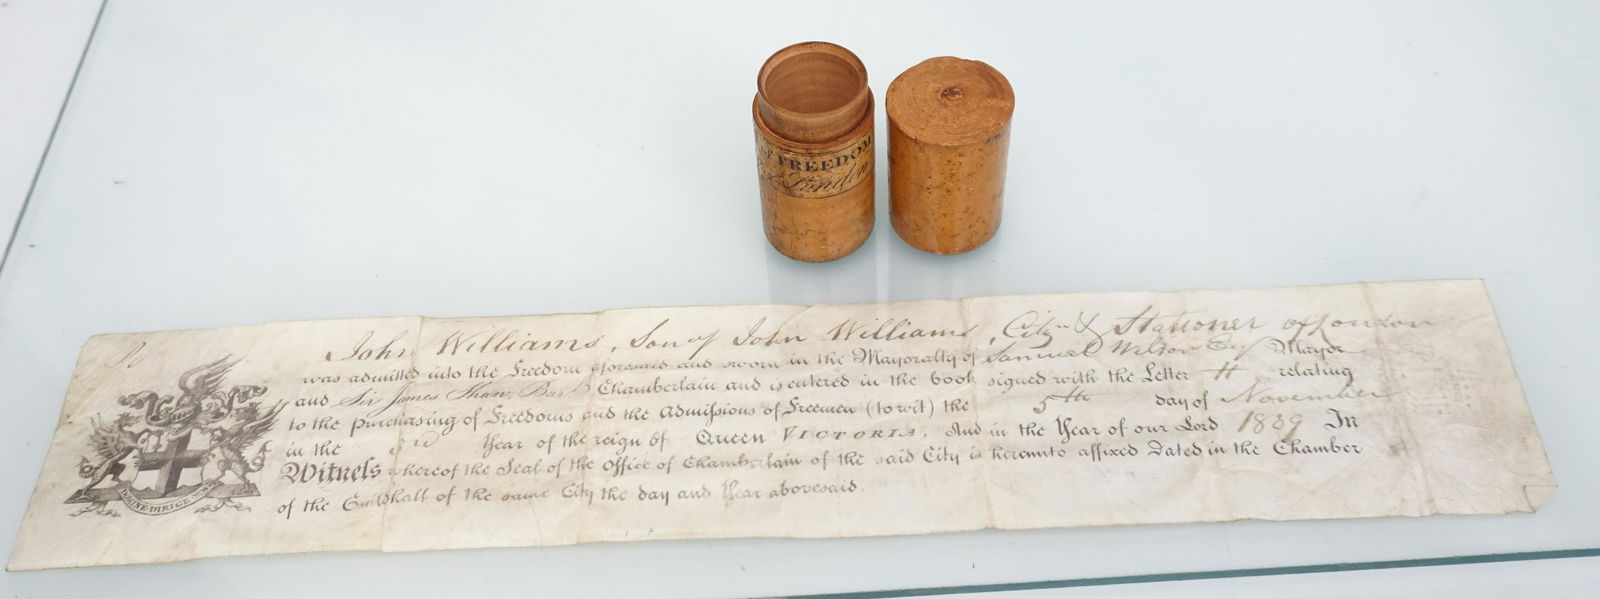 OF FREEDOM
London
N
John Williams, Son of John Williams, Cityn & Stationer of London
was admitted into the Freedom aforesaid and sworn in the Mayoralty of Samuel Wilson Esqr Mayor
and Sir James Shaw Bart Chamberlain and is entered in the book signed with the Letter H relating
to the purchasing of Freedoms and the Admissions of Freemen (to wit) the 5th day of November
in the 3rd Year of the reign of Queen VICTORIA, And in the Year of our Lord 1839 In
Witness whereof the Seal of the Office of Chamberlain of the said City is hereunto affixed Dated in the Chamber
of the Guildhall of the same City the day and Year abovesaid.
DOMINE DIRIGE NOS